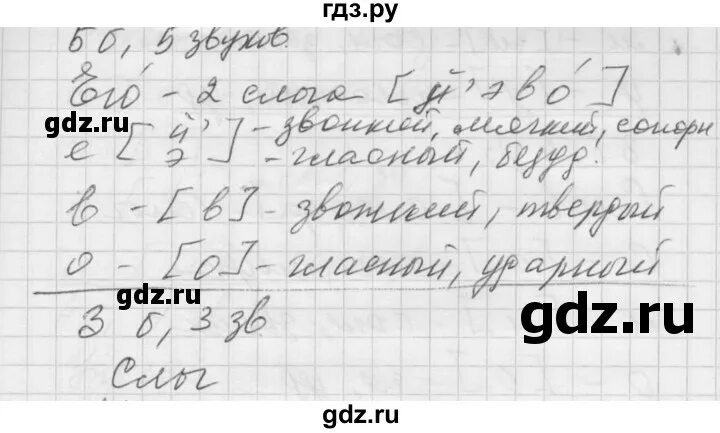 гдз.ру
5 б, 5 звуков
Его́ - 2 слога [й'эво́]
gdz.ru
gdz.ru
е [й'] - звонкий, мягкий, сонорн
[э] - гласный, безуд.
в - [в] - звонкий, твердый
о - [о] - гласный, ударный
gdz.ru
gdz.ru
3 б, 3 зв
Слог
gdz.ru